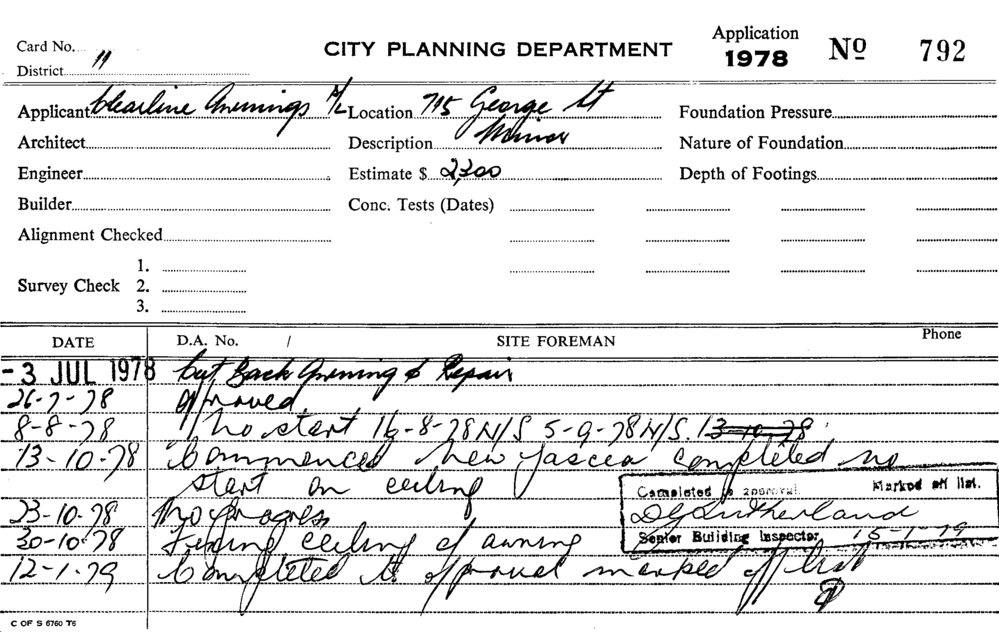 Card No.
District 11
CITY PLANNING DEPARTMENT
Application
1978 Nº 792
Applicant Clearline Awnings P/L Location 715 George St Foundation Pressure
Architect Description Minor Nature of Foundation
Engineer Estimate $ 2,300 Depth of Footings
Builder Conc. Tests (Dates)
Alignment Checked
Survey Check 1.
2.
3.
DATE D.A. No. / SITE FOREMAN Phone
-3 JUL 1978 Cut Back Awning & Repair
26-7-78 Approved
8-8-78 No start 16-8-78 N/S 5-9-78 N/S. 13-10-78
13-10-78 Commenced new fascea completed no
start on ceiling
23-10-78 No progress
30-10-78 Fixing ceiling of awning
12-1-79 Completed to approval marked off list
Completed to approval. Marked off list.
DG Sutherland
Senior Building Inspector 15-1-79
C OF S 6760 T6